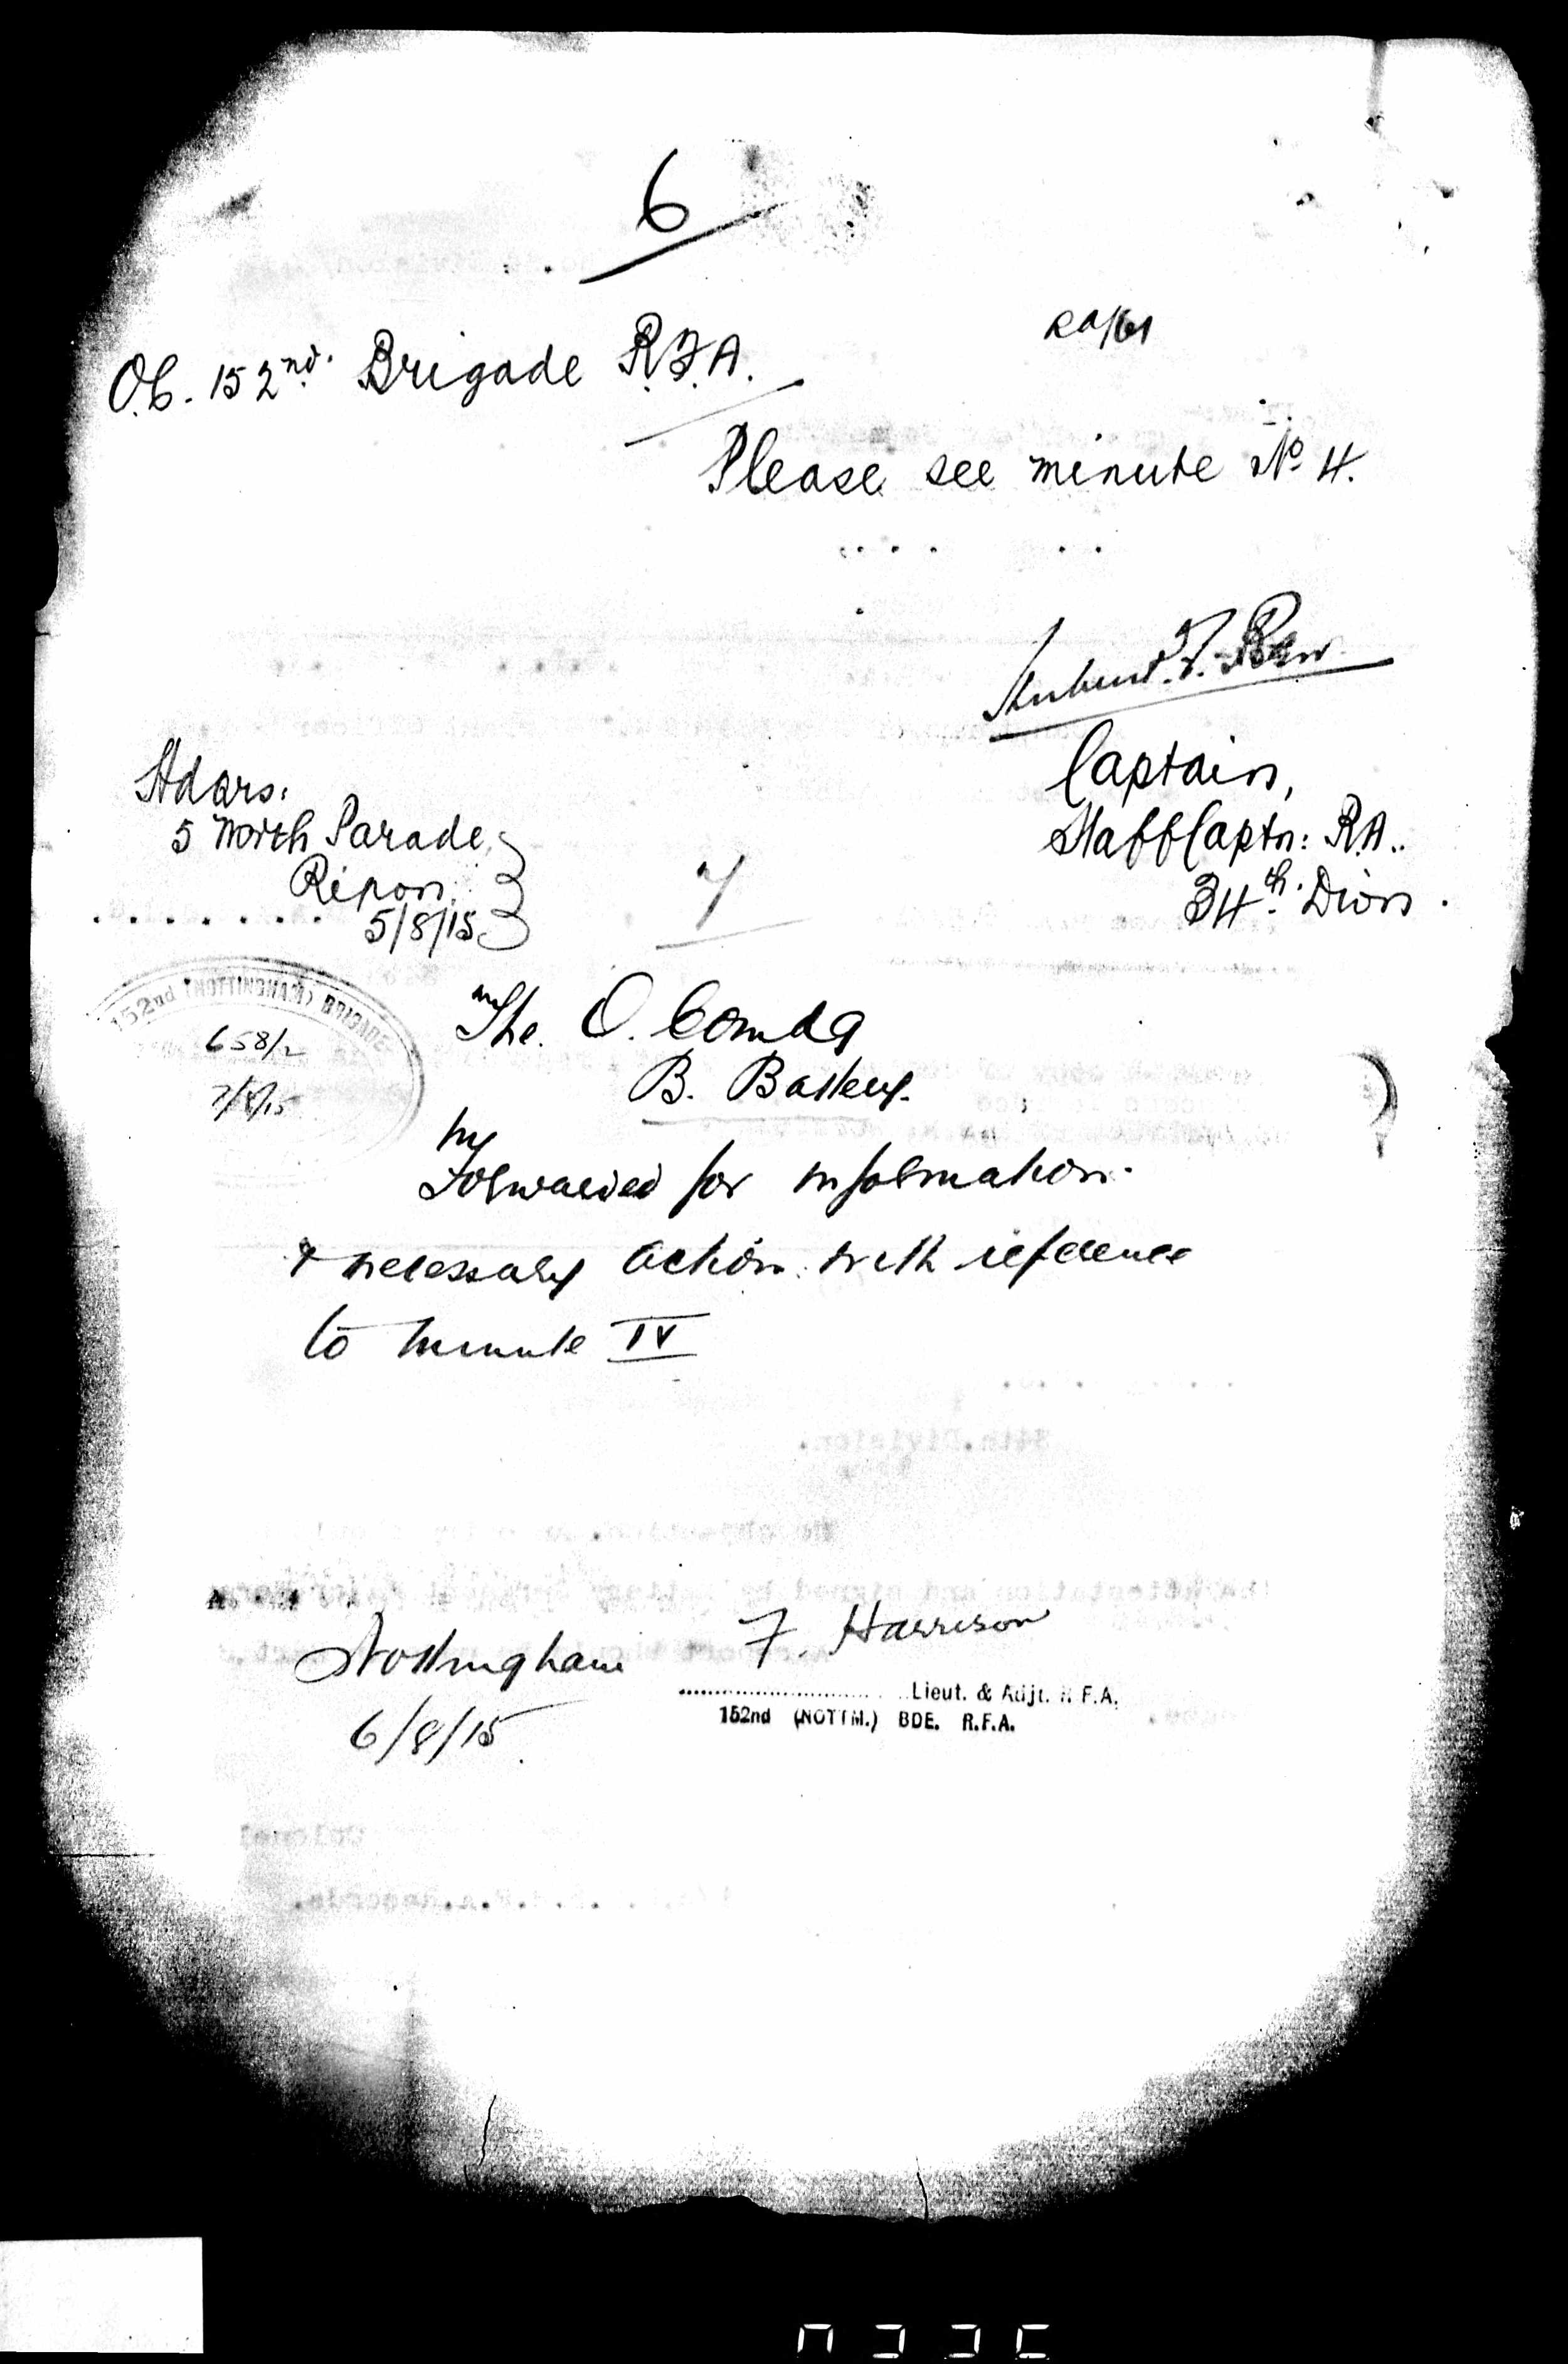 6
RA/61
O.C. 152nd. Brigade R.F.A.
Please see minute No 4.
Captain,
Staff Captn: R.A..
34th. Divn.
Hdqrs:
5 North Parade,
Ripon.
5/8/15
7
152nd (NOTTINGHAM) BRIGADE
658/2
7/8/15
The O. Comdg
B. Battery.
Forwarded for information
& necessary action with reference
to minute IV
Nottingham
6/8/15
F. Harrison
Lieut. & Adjt. R.F.A.
152nd (NOTTM.) BDE. R.F.A.